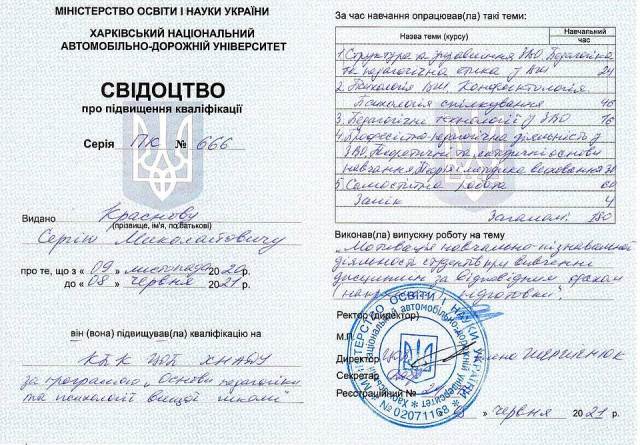 МІНІСТЕРСТВО ОСВІТИ І НАУКИ УКРАЇНИ
ХАРКІВСЬКИЙ НАЦІОНАЛЬНИЙ
АВТОМОБІЛЬНО-ДОРОЖНІЙ УНІВЕРСИТЕТ
СВІДОЦТВО
про підвищення кваліфікації
Серія ПК № 666
Видано Краснову
(прізвище, ім'я, по батькові)
Сергію Миколайовичу
про те, що з « 09 » листопада 2020
до « 08 » червня 2021
він (вона) підвищував(ла) кваліфікацію на
ХНАДУ
за програмою „Основи педагогіки
та психології вищої школи"
За час навчання опрацював(ла) такі теми:
Назва теми (курсу) Навчальний час
1. Структура та управління ЗВО. Педагогіка
та педагогічна етика у ВШ 24
2. Психологія ВШ. Конфліктологія.
Психологія спілкування 46
3. Педагогічні технології у ЗВО 16
4. Професійно-педагогічна діяльність у
ЗВО. Теоретичні та методичні основи
навчання. Теорія і методика виховання
5. Самостійна робота 60
Залік 4
Загалом: 180
Виконав(ла) випускну роботу на тему
„Мотивація навчально-пізнавальної
діяльності студентів при вивченні
дисциплін за відповідним фахом
(напрямом підготовки)".
Ректор (директор)
М.П.
Директор
Секретар
Реєстраційний №
« 08 » червня 2021
МІНІСТЕРСТВО ОСВІТИ І НАУКИ УКРАЇНИ
Харківський національний автомобільно-дорожній університет
№ 02071168